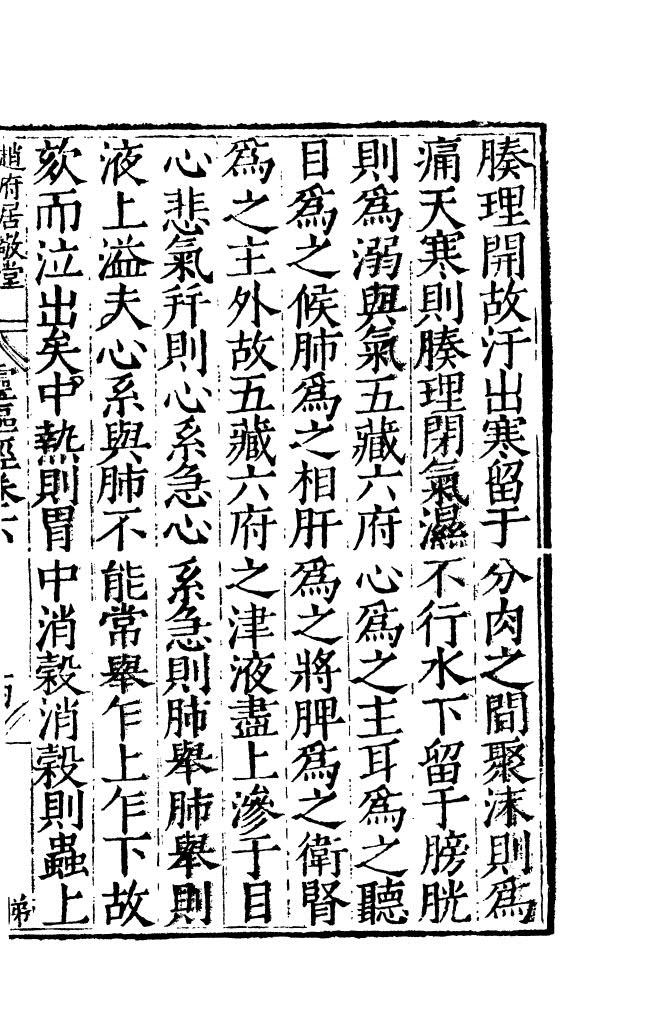 腠理開故汗出寒留于分肉之間聚沫則爲
痛天寒則腠理閉氣濕不行水下留于膀胱
則爲溺與氣五藏六府心爲之主耳爲之聽
目爲之候肺爲之相肝爲之將脾爲之衛腎
爲之主外故五藏六府之津液盡上滲于目
心悲氣幷則心系急心系急則肺舉肺舉則
液上溢夫心系與肺不能常舉乍上乍下故
欬而泣出矣中熱則胃中消穀消穀則蟲上
趙府居敬堂